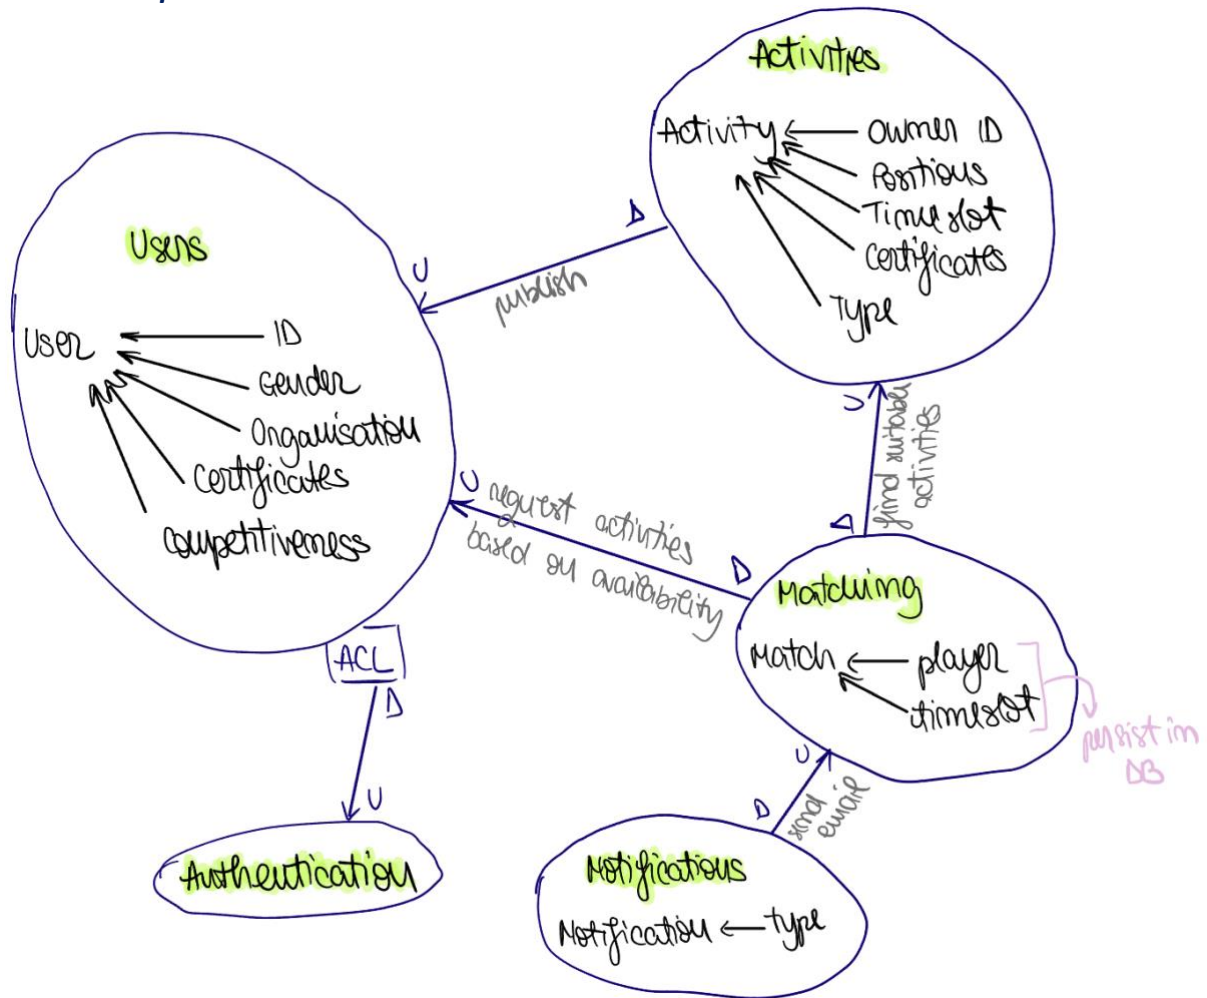 Activities
Activity
Owner ID
Positions
Timeslot
Certificates
Type
Users
User
ID
Gender
Organisation
Certificates
Competitiveness
D
U
publish
U
find suitable
activities
D
U
request activities
based on availability
D
Matching
Match
player
timeslot
persist in
DB
ACL
D
U
Authentication
U
send
email
D
Notifications
Notification
type